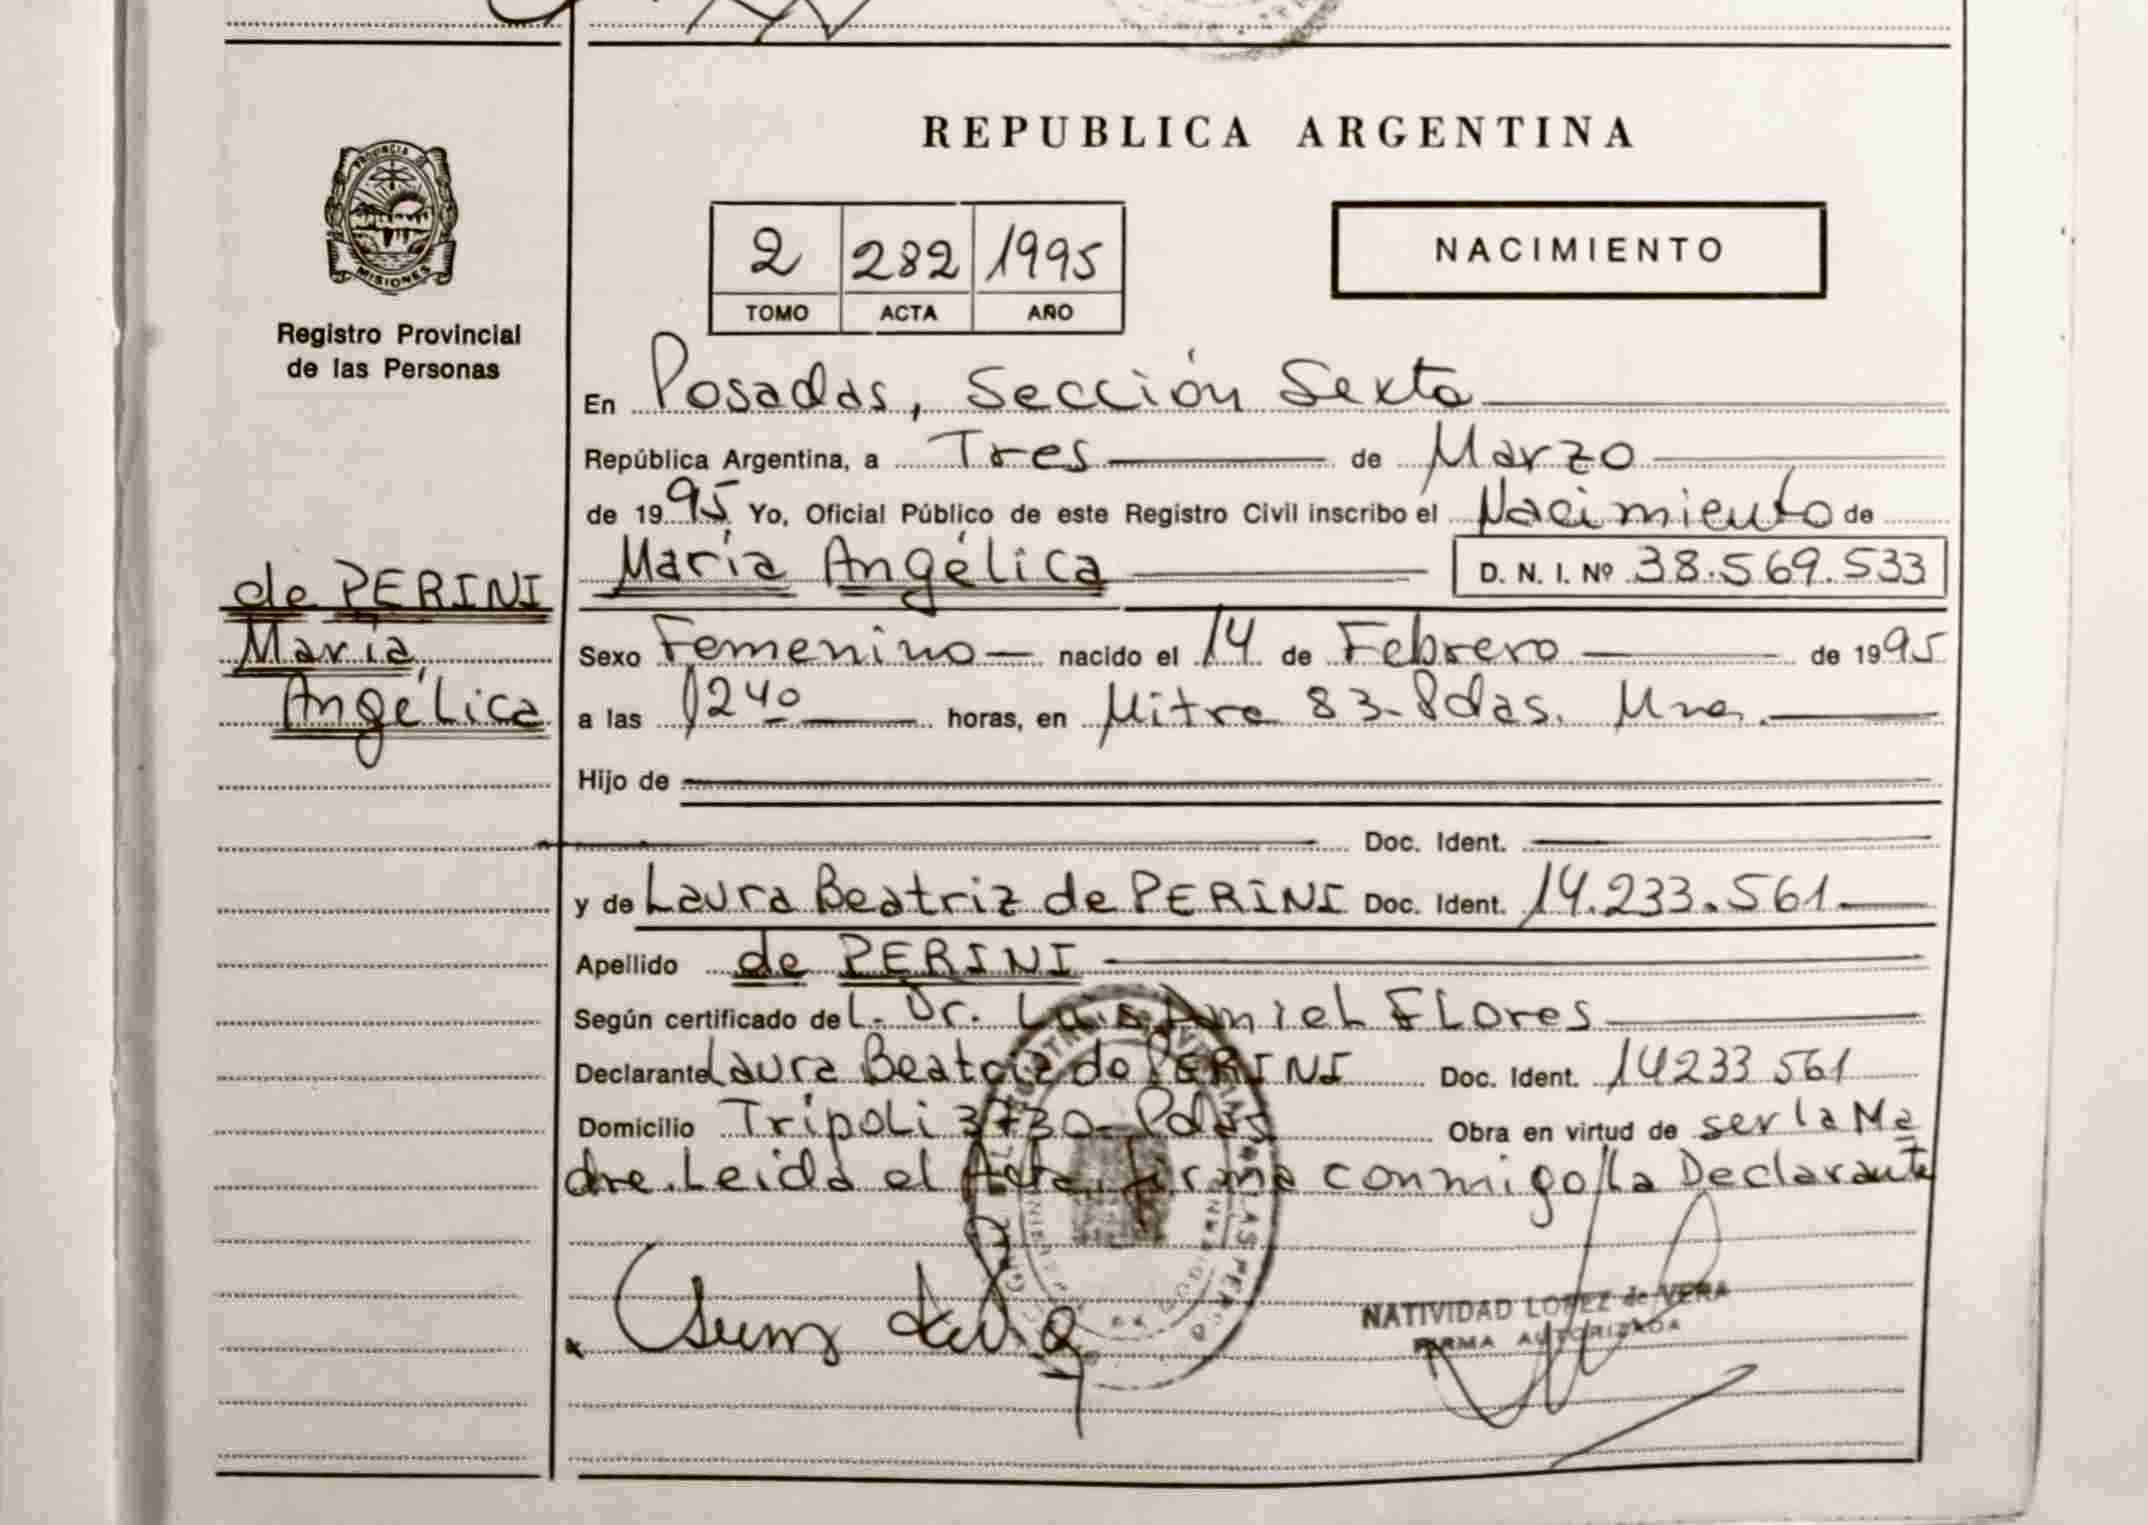 PROVINCIA DE
MISIONES
Registro Provincial
de las Personas
de PERINI
María
Angélica
REPUBLICA ARGENTINA
2 282 1995
TOMO ACTA AÑO
NACIMIENTO
En Posadas, Sección Sexta
República Argentina, a Tres de Marzo
de 1995 Yo, Oficial Público de este Registro Civil inscribo el Nacimiento de
María Angélica D. N. I. Nº 38.569.533
Sexo Femenino nacido el 14 de Febrero de 1995
a las 1240 horas, en Mitre 83-Pdas. Mnes.
Hijo de
Doc. Ident.
y de Laura Beatriz de PERINI Doc. Ident. 14.233.561
Apellido de PERINI
Según certificado del Dr. Luis Amiel Flores
Declarante Laura Beatriz de PERINI Doc. Ident. 14233561
Domicilio Trípoli 3730-Pdas Obra en virtud de ser la Ma
dre. Leida el Acta, firma conmigo/la Declarante
NATIVIDAD LOPEZ de VERA
FIRMA AUTORIZADA